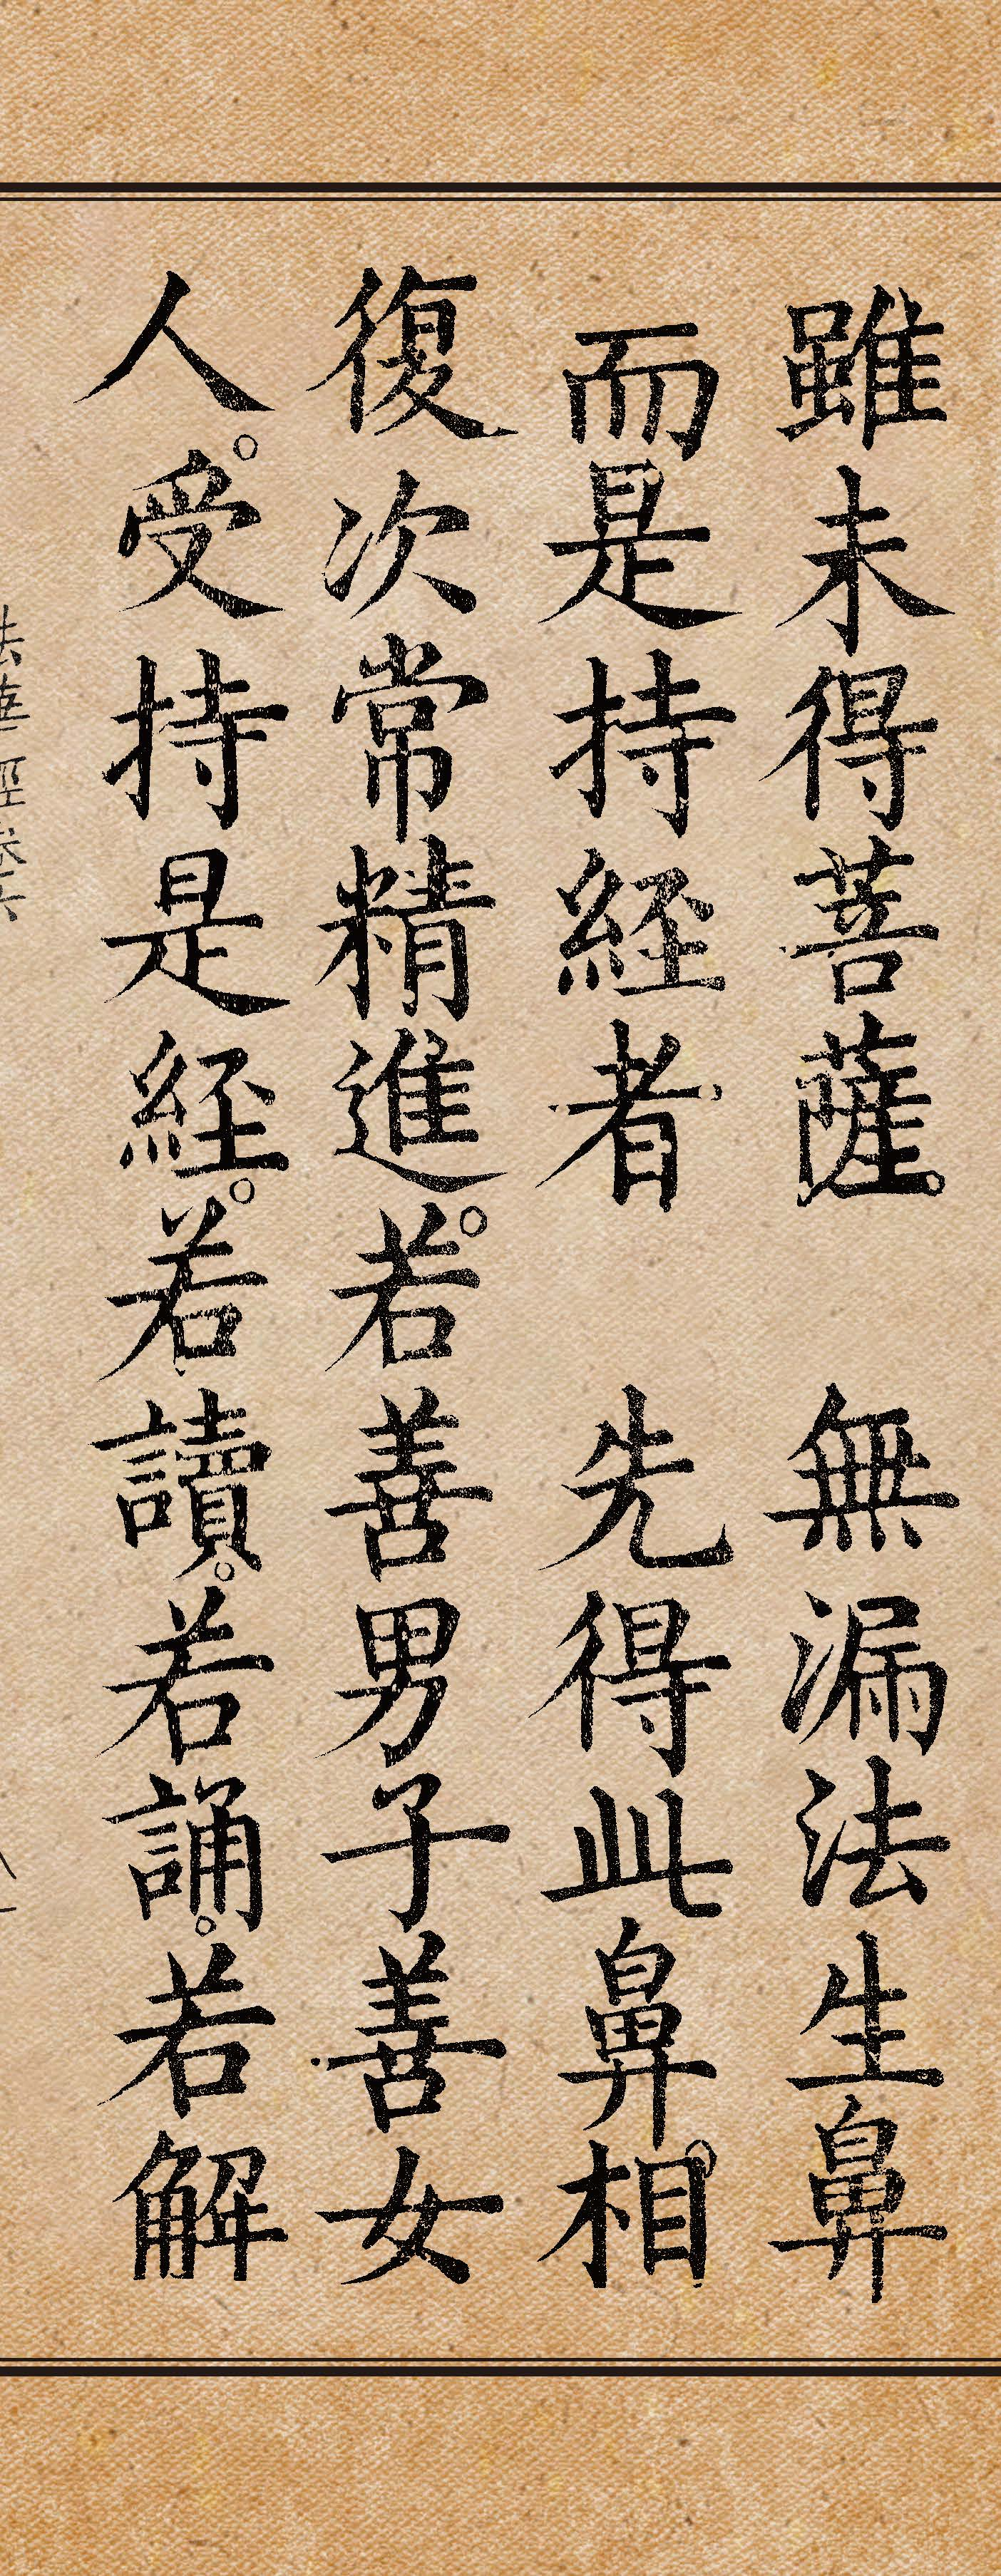 雖未得菩薩。　無漏法生鼻
而是持經者　先得此鼻相。
復次常精進。若善男子善女
人。受持是經。若讀。若誦。若解